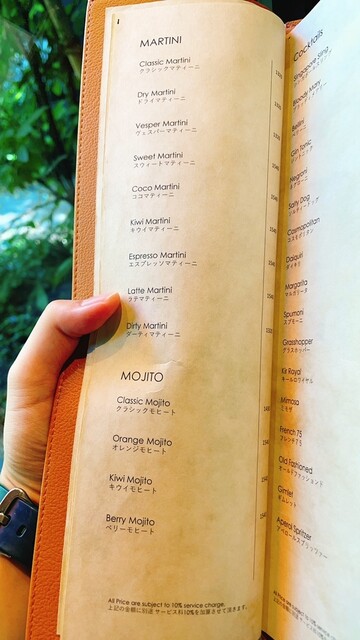 MARTINI
Classic Martini
クラシックマティーニ
Dry Martini
ドライマティーニ
Vesper Martini
ヴェスパーマティーニ
Sweet Martini
スウィートマティーニ
Coco Martini
ココマティーニ
Kiwi Martini
キウイマティーニ
Espresso Martini
エスプレッソマティーニ
Latte Martini
ラテマティーニ
Dirty Martini
ダーティマティーニ
MOJITO
Classic Mojito
クラシックモヒート
Orange Mojito
オレンジモヒート
Kiwi Mojito
キウイモヒート
Berry Mojito
ベリーモヒート
All Price are subject to 10% service charge.
上記の金額に別途 サービス料10%を加算させて頂きます。
Cocktails
Singapore Sling
Bloody Mary
Bellini
Gin Tonic
Negroni
Salty Dog
Cosmopolitan
コスモポリタン
Daiquiri
ダイキリ
Margarita
マルガリータ
Spumoni
スプモーニ
Grasshopper
グラスホッパー
Kir Royal
キールロワイヤル
Mimosa
ミモザ
French 75
フレンチ75
Old Fashioned
オールドファッションド
Gimlet
ギムレット
Aperol Spritzer
アペロールスプリッツァー